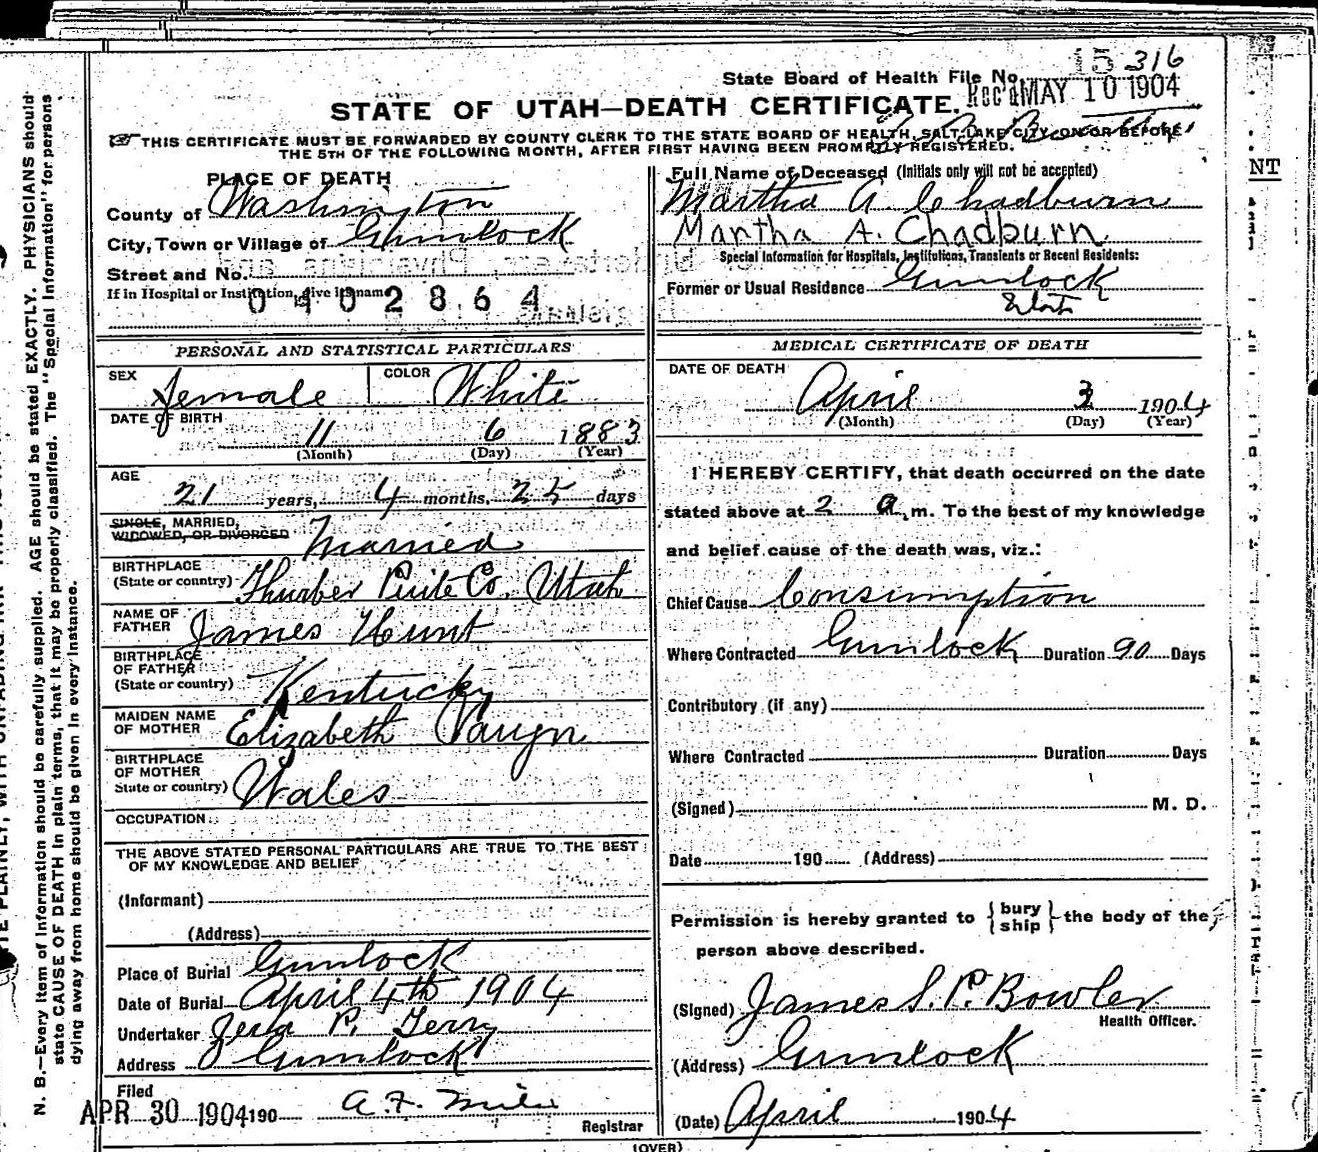 15 316
State Board of Health File No.
Rec'd MAY 10 1904
STATE OF UTAH—DEATH CERTIFICATE.
THIS CERTIFICATE MUST BE FORWARDED BY COUNTY CLERK TO THE STATE BOARD OF HEALTH, SALT LAKE CITY, ON OR BEFORE
THE 5TH OF THE FOLLOWING MONTH, AFTER FIRST HAVING BEEN PROMPTLY REGISTERED.
PLACE OF DEATH
County of Washington
City, Town or Village of Gunlock
Street and No.
If in Hospital or Institution, give its name
0402864
Full Name of Deceased (Initials only will not be accepted)
Martha A Chadburn
Martha A. Chadburn
Special Information for Hospitals, Institutions, Transients or Recent Residents:
Former or Usual Residence Gunlock
Utah
PERSONAL AND STATISTICAL PARTICULARS
SEX female COLOR White
DATE OF BIRTH 11 6 1883
(Month) (Day) (Year)
AGE
21 years, 4 months, 25 days
SINGLE, MARRIED,
WIDOWED, OR DIVORCED Married
BIRTHPLACE
(State or country) Thurber Piute Co, Utah
NAME OF
FATHER James Hunt
BIRTHPLACE
OF FATHER
(State or country) Kentucky
MAIDEN NAME
OF MOTHER Elizabeth
BIRTHPLACE
OF MOTHER
State or country) Wales
OCCUPATION
THE ABOVE STATED PERSONAL PARTICULARS ARE TRUE TO THE BEST
OF MY KNOWLEDGE AND BELIEF
(Informant)
(Address)
Place of Burial Gunlock
Date of Burial April 4th 1904
Undertaker P. Terry
Address Gunlock
Filed
APR 30 1904 190 A. F. Miles
Registrar
MEDICAL CERTIFICATE OF DEATH
DATE OF DEATH
April 3 1904
(Month) (Day) (Year)
I HEREBY CERTIFY, that death occurred on the date
stated above at 2 a. m. To the best of my knowledge
and belief cause of the death was, viz.:
Chief Cause Consumption
Where Contracted Gunlock Duration 90 Days
Contributory (if any)
Where Contracted Duration Days
(Signed) M. D.
Date 190 (Address)
Permission is hereby granted to {bury
ship} the body of the
person above described.
(Signed) James S. P. Bowler
Health Officer.
(Address) Gunlock
(Date) April 1904
(OVER)
N. B.—Every item of information should be carefully supplied. AGE should be stated EXACTLY. PHYSICIANS should
state CAUSE OF DEATH in plain terms, that it may be properly classified. The "Special Information" for persons
dying away from home should be given in every instance.
NT